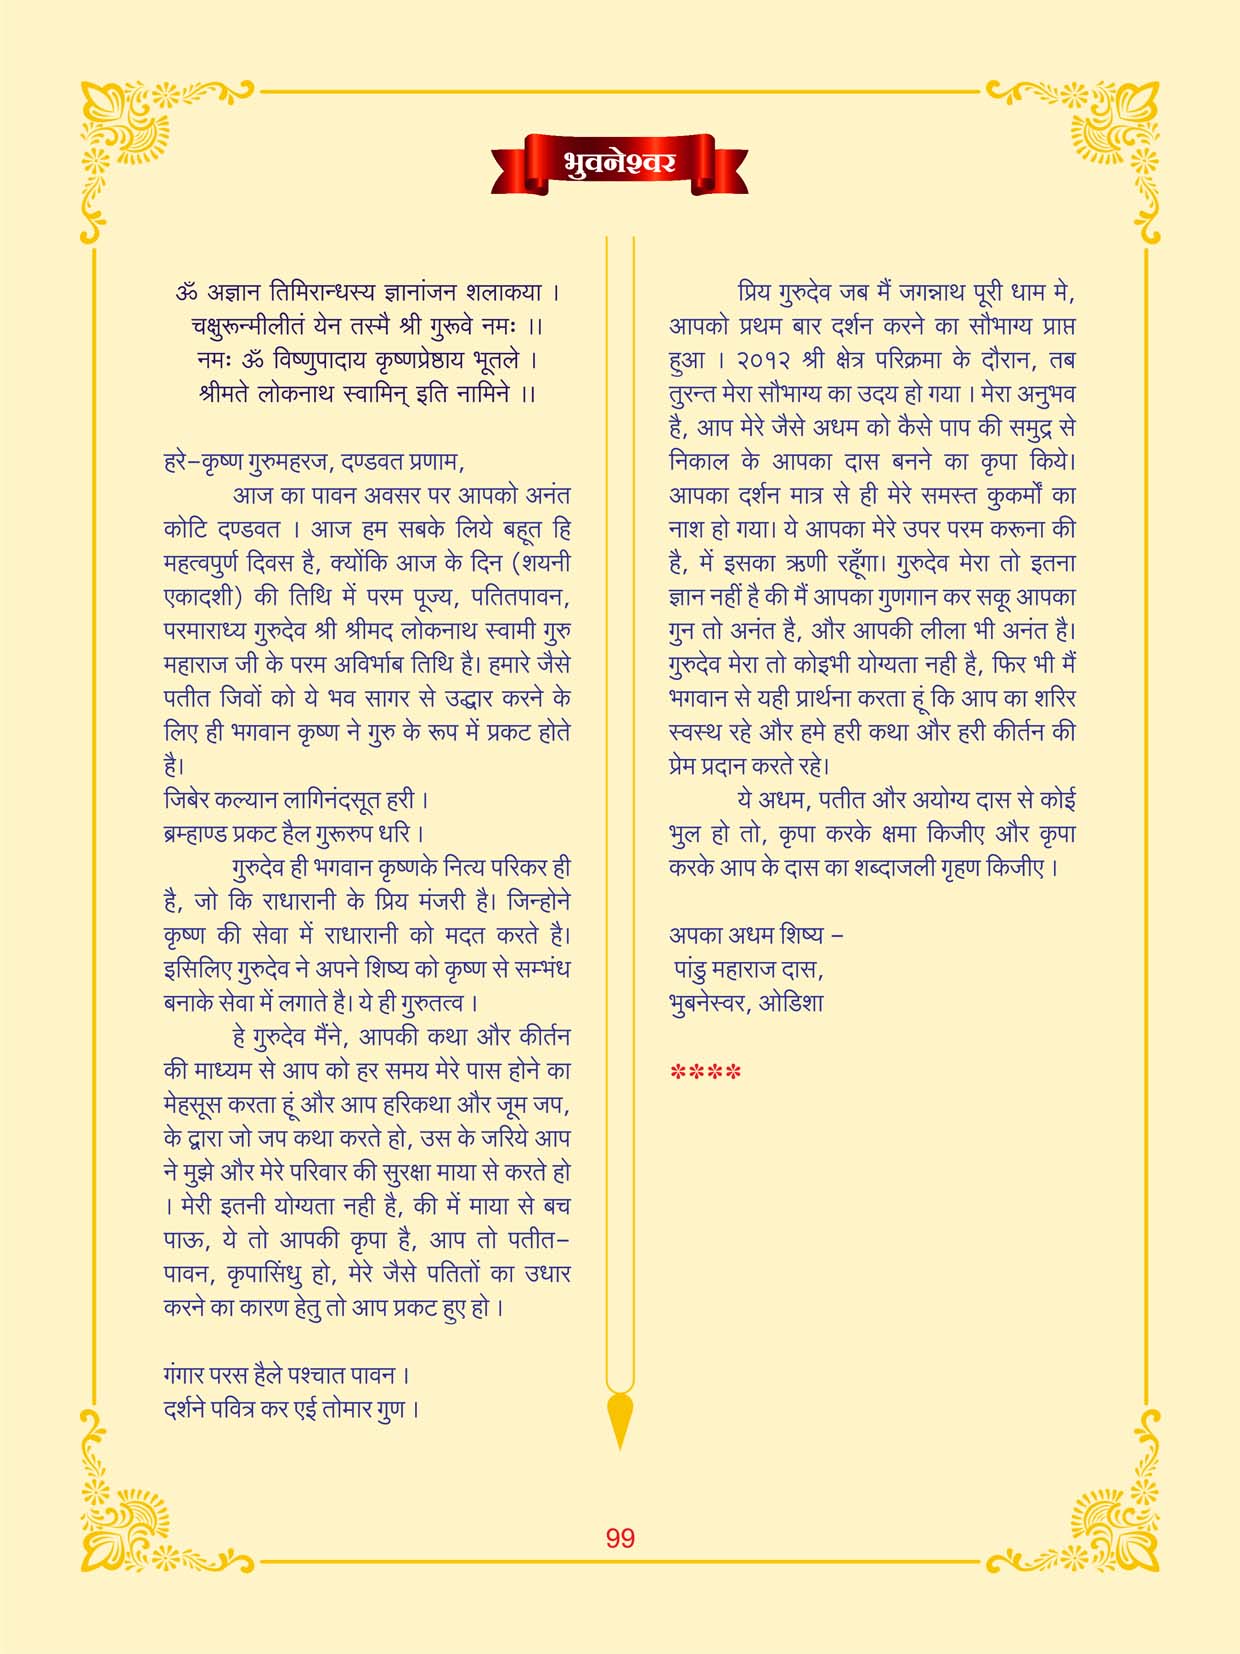 भुवनेश्वर
ॐ अज्ञान तिमिरान्धस्य ज्ञानांजन शलाकया ।
चक्षुरून्मीलीतं येन तस्मै श्री गुरूवे नमः ।।
नमः ॐ विष्णुपादाय कृष्णप्रेष्ठाय भूतले ।
श्रीमते लोकनाथ स्वामिन् इति नामिने ।।
हरे-कृष्ण गुरुमहरज, दण्डवत प्रणाम,
आज का पावन अवसर पर आपको अनंत
कोटि दण्डवत । आज हम सबके लिये बहूत हि
महत्वपुर्ण दिवस है, क्योंकि आज के दिन (शयनी
एकादशी) की तिथि में परम पूज्य, पतितपावन,
परमाराध्य गुरुदेव श्री श्रीमद लोकनाथ स्वामी गुरु
महाराज जी के परम अविर्भाब तिथि है। हमारे जैसे
पतीत जिवों को ये भव सागर से उद्धार करने के
लिए ही भगवान कृष्ण ने गुरु के रूप में प्रकट होते
है।
जिबेर कल्यान लागिनंदसूत हरी ।
ब्रम्हाण्ड प्रकट हैल गुरूरुप धरि ।
गुरुदेव ही भगवान कृष्णके नित्य परिकर ही
है, जो कि राधारानी के प्रिय मंजरी है। जिन्होने
कृष्ण की सेवा में राधारानी को मदत करते है।
इसिलिए गुरुदेव ने अपने शिष्य को कृष्ण से सम्भंध
बनाके सेवा में लगाते है। ये ही गुरुतत्व ।
हे गुरुदेव मैंने, आपकी कथा और कीर्तन
की माध्यम से आप को हर समय मेरे पास होने का
मेहसूस करता हूं और आप हरिकथा और जूम जप,
के द्वारा जो जप कथा करते हो, उस के जरिये आप
ने मुझे और मेरे परिवार की सुरक्षा माया से करते हो
। मेरी इतनी योग्यता नही है, की में माया से बच
पाऊ, ये तो आपकी कृपा है, आप तो पतीत-
पावन, कृपासिंधु हो, मेरे जैसे पतितों का उधार
करने का कारण हेतु तो आप प्रकट हुए हो ।
गंगार परस हैले पश्चात पावन ।
दर्शने पवित्र कर एई तोमार गुण ।
प्रिय गुरुदेव जब मैं जगन्नाथ पूरी धाम मे,
आपको प्रथम बार दर्शन करने का सौभाग्य प्राप्त
हुआ । २०१२ श्री क्षेत्र परिक्रमा के दौरान, तब
तुरन्त मेरा सौभाग्य का उदय हो गया । मेरा अनुभव
है, आप मेरे जैसे अधम को कैसे पाप की समुद्र से
निकाल के आपका दास बनने का कृपा किये।
आपका दर्शन मात्र से ही मेरे समस्त कुकर्मों का
नाश हो गया। ये आपका मेरे उपर परम करूना की
है, में इसका ऋणी रहूँगा। गुरुदेव मेरा तो इतना
ज्ञान नहीं है की मैं आपका गुणगान कर सकू आपका
गुन तो अनंत है, और आपकी लीला भी अनंत है।
गुरुदेव मेरा तो कोइभी योग्यता नही है, फिर भी मैं
भगवान से यही प्रार्थना करता हूं कि आप का शरिर
स्वस्थ रहे और हमे हरी कथा और हरी कीर्तन की
प्रेम प्रदान करते रहे।
ये अधम, पतीत और अयोग्य दास से कोई
भुल हो तो, कृपा करके क्षमा किजीए और कृपा
करके आप के दास का शब्दाजली गृहण किजीए ।
अपका अधम शिष्य -
पांडु महाराज दास,
भुबनेस्वर, ओडिशा
****
99